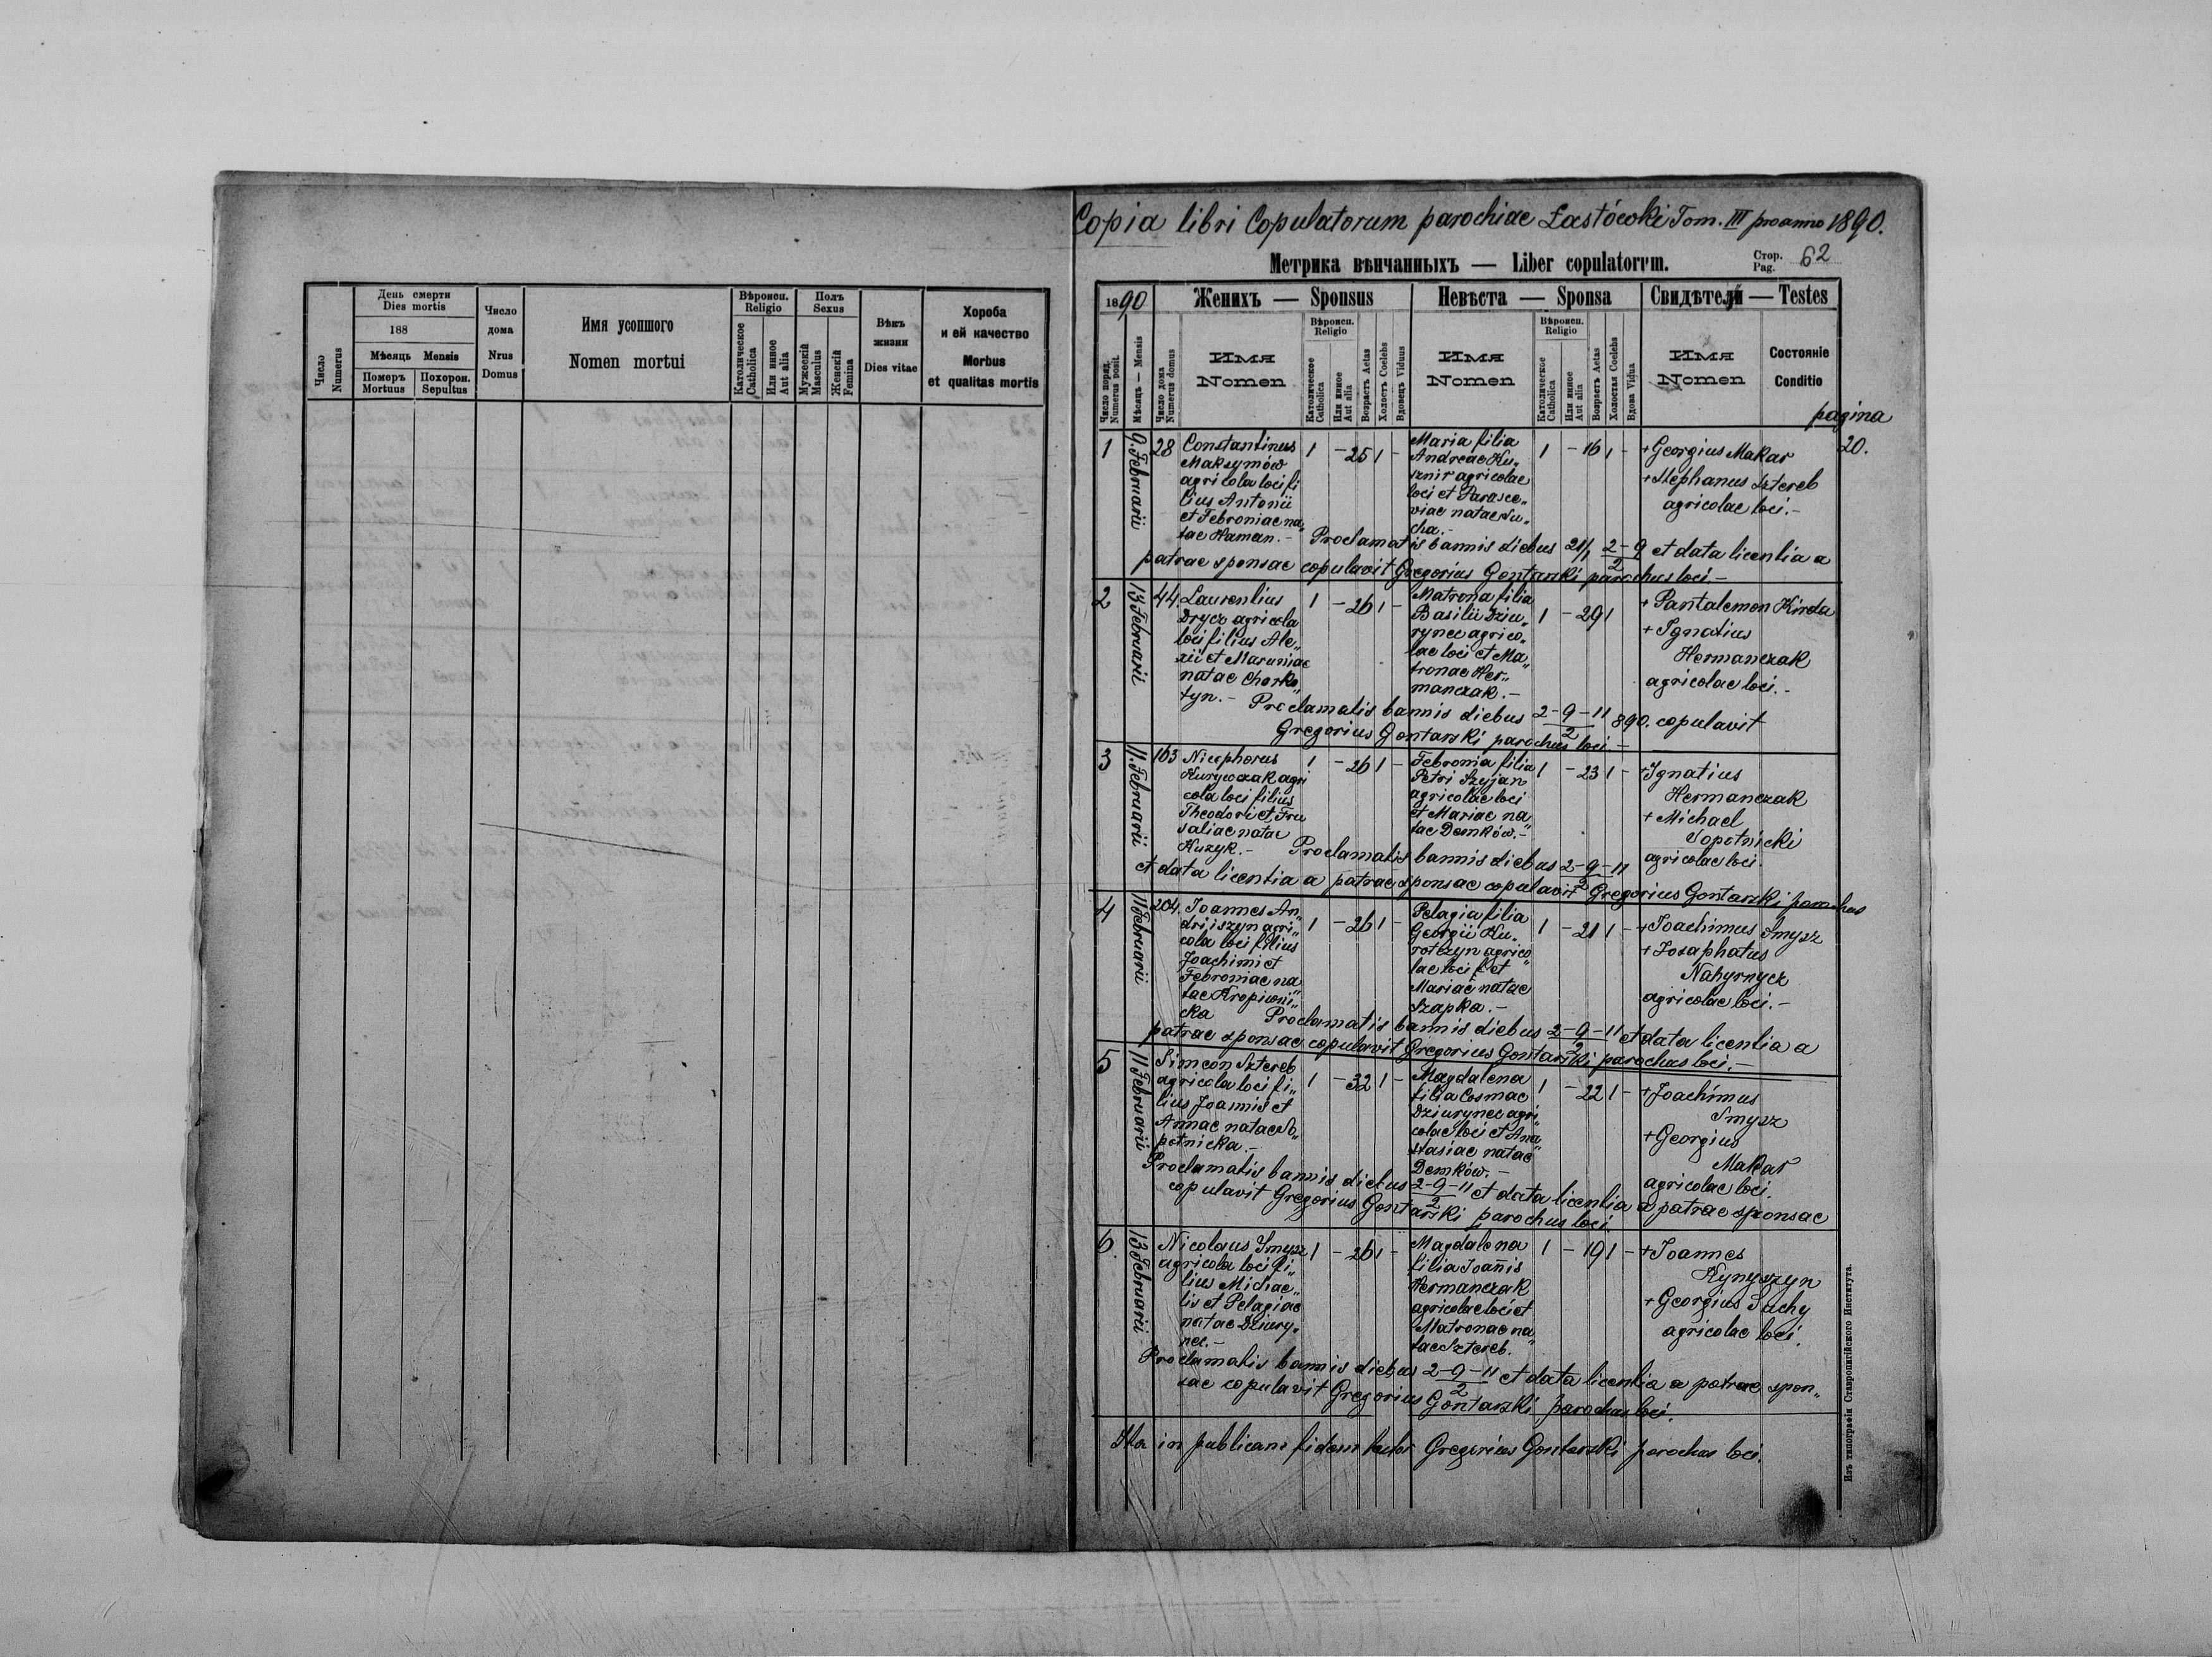 День смерти
Dies mortis
188
Мѣсяць Mensis
Померъ
Mortuus
Похорон.
Sepultus
Число
Numerus
Число
дома
Nrus
Domus
Имя усопшого
Nomen mortui
Вѣроисп.
Religio
Католическое
Catholica
Или инное
Aut alia
Полъ
Sexus
Мужескій
Masculus
Женскій
Femina
Вѣкъ
жизни
Dies vitae
Хороба
и ей качество
Morbus
et qualitas mortis
Copia libri Copulatorum parochiae Łastówki Tom. III pro anno 1890.
Метрика вѣнчанныхъ — Liber copulatorum.
Стор.
Pag. 62
1890
Женихъ — Sponsus
Невѣста — Sponsa
Свидѣтели — Testes
Число поряд.
Numerus posit.
Мѣсяць — Mensis
Число дома
Numerus domus
Имя
Nomen
Вѣроисп.
Religio
Католическое
Catholica
Или инное
Aut alia
Возрастъ Aetas
Холостъ Coelebs
Вдовецъ Viduus
Имя
Nomen
Вѣроисп.
Religio
Католическое
Catholica
Или инное
Aut alia
Возрастъ Aetas
Холостая Coelebs
Вдова Vidua
Имя
Nomen
Состояніе
Conditio
pagina
20.
1
9. Februarii
28
Constantinus
Maksymów
agricola loci fi
lius Antonii
et Febroniae na„
tae Haman. –
1 – 25 1 –
Maria filia
Andreae Ku„
sznir agricolae
loci et Parasce„
viae natae Su„
cha. –
1 – 16 1 –
+ Georgius Makar
+ Stephanus Sztereb
agricolae loci. –
Proclamatis bannis diebus 21/1 2–9/2 et data licentia a
patrae sponsae copulavit Gregorius Gontarski parochus loci. –
2
13 Februarii
44.
Laurentius
Drycz agricola
loci filius Ale„
xii et Maruniae
natae Charko„
tyn. –
1 – 26 1 –
Matrona filia
Basilii Dziu„
rynec agrico„
lae loci et Ma„
tronae Her„
manczak. –
1 – 29 1
+ Pantalemon Kinda
+ Ignatius
Hermanczak
agricolae loci. –
Proclamatis bannis diebus 2–9–11/2 890. copulavit
Gregorius Gontarski parochus loci –
3
11. Februarii
163
Nicephorus
Kurywczak agri
cola loci filius
Theodori et Fru
saliae natae
Kuzyk. –
1 – 26 1 –
Febronia filia
Petri Szyjan
agricolae loci
et Mariae na„
tae Demków. –
1 – 23 1 –
+ Ignatius
Hermanczak
+ Michael
Sopotnicki
agricolae loci.
Proclamatis bannis diebus 2–9–11/2
et data licentia a patrae sponsae copulavit Gregorius Gontarski parochus
4
11 Februarii
204.
Joannes An„
driiszyn agri„
cola loci filius
Joachimi et
Febroniae na„
tae Kropiwni„
cka
1 – 26 1 –
Pelagia filia
Georgii Ku„
rotczyn agrico„
lae loci et
Mariae natae
Szapka. –
1 – 21 1 –
+ Joachimus Smysz
+ Josaphatus
Nahyrnycz
agricolae loci. –
Proclamatis bannis diebus 2–9–11/2 et data licentia a
patrae sponsae copulavit Gregorius Gontarski parochus loci. –
5
11 Februarii
Simeon Sztereb
agricola loci fi„
lius Joannis et
Annae natae So„
potnicka. –
1 – 32 1 –
Magdalena
filia Cosmae
Dziurynec agri„
colae loci et Ana„
stasiae natae
Demków. –
1 – 22 1 –
+ Joachimus
Smysz
+ Georgius
Makar
agricolae loci.
Proclamatis bannis diebus 2–9–11/2 et data licentia a patrae sponsae
copulavit Gregorius Gontarski parochus loci
6.
13 Februarii
Nicolaus Smysz
agricola loci fi„
lius Michae„
lis et Pelagiae
natae Dziury„
nec. –
1 – 26 1 –
Magdalena
filia Joannis
Hermanczak
agricolae loci et
Matronae na„
tae Sztereb.
1 – 19 1 –
+ Joannes
Kynyszyn
+ Georgius Suchy
agricolae loci.
Proclamatis bannis diebus 2–9–11/2 et data licentia a patrae spon„
sae copulavit Gregorius Gontarski parochus loci.
Ita in publicam fidem testor Gregorius Gontarski parochus loci.
Изъ типографіи Ставропигійского Института.